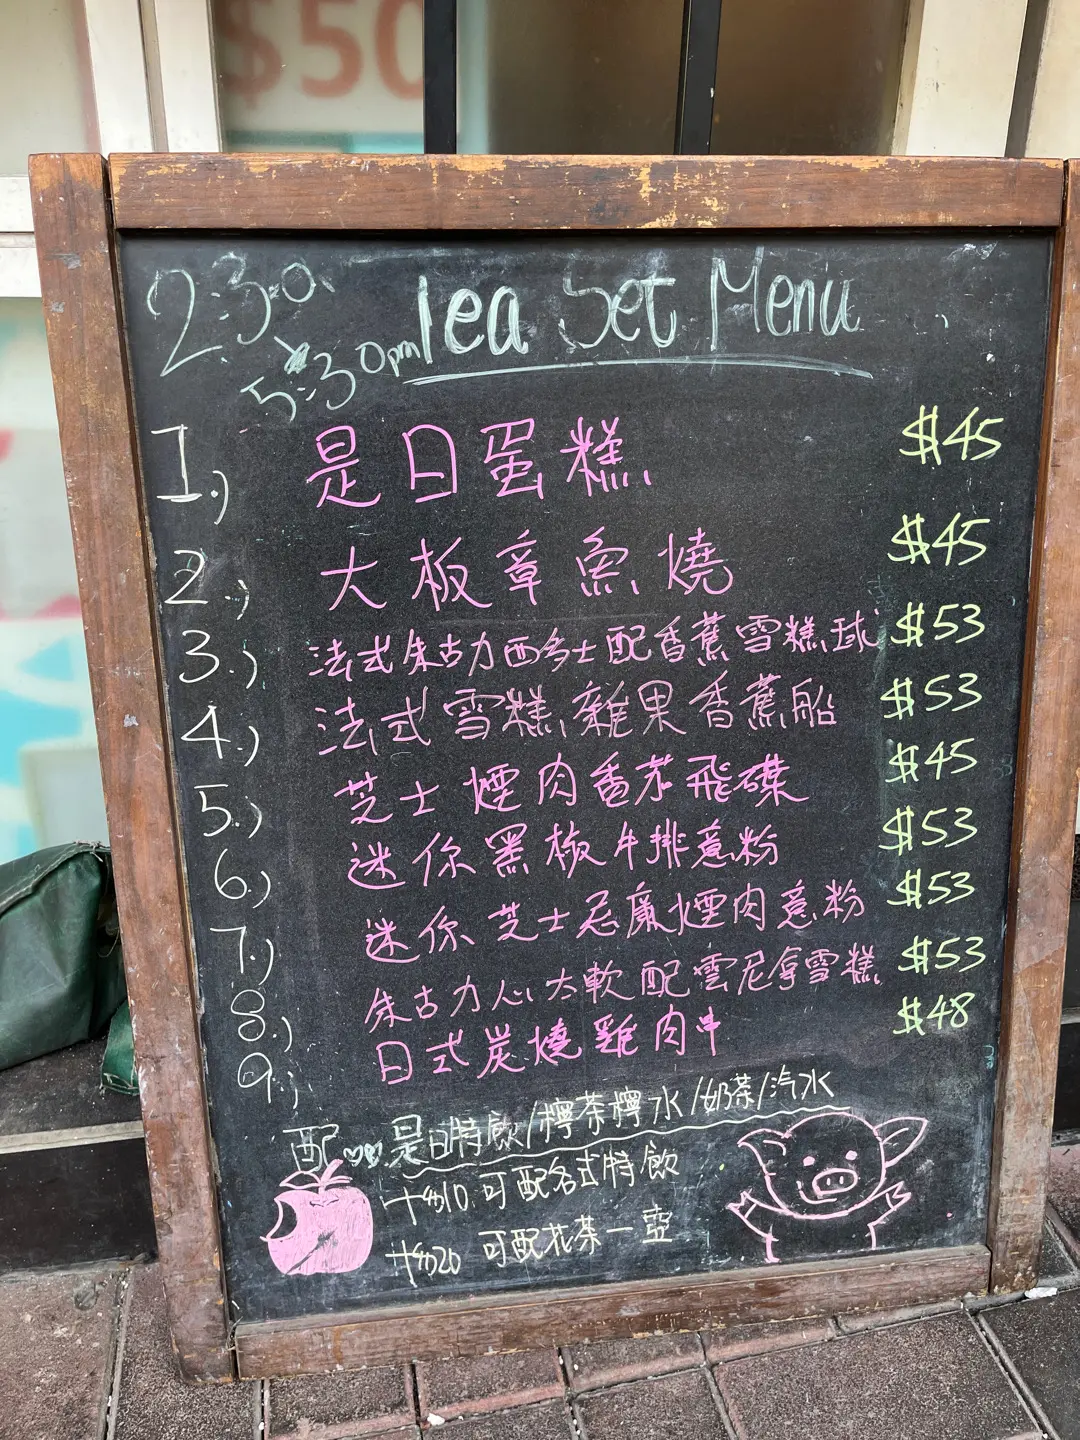 $50
2:30
Tea Set Menu
5:30pm
1.) 是日蛋糕 $45
2.) 大板章魚燒 $45
3.) 法式朱古力西多士配香蕉雪糕球 $53
4.) 法式雪糕雜果香蕉船 $53
5.) 芝士煙肉香茅飛碟 $45
6.) 迷你黑椒牛排意粉 $53
7.) 迷你芝士忌廉煙肉意粉 $53
8.) 朱古力心太軟配雲尼拿雪糕 $53
9.) 日式炭燒雞肉串 $48
配 是日特飲/檸茶檸水/奶茶/汽水
+$10 可配各式特飲
+$20 可配花茶一壺